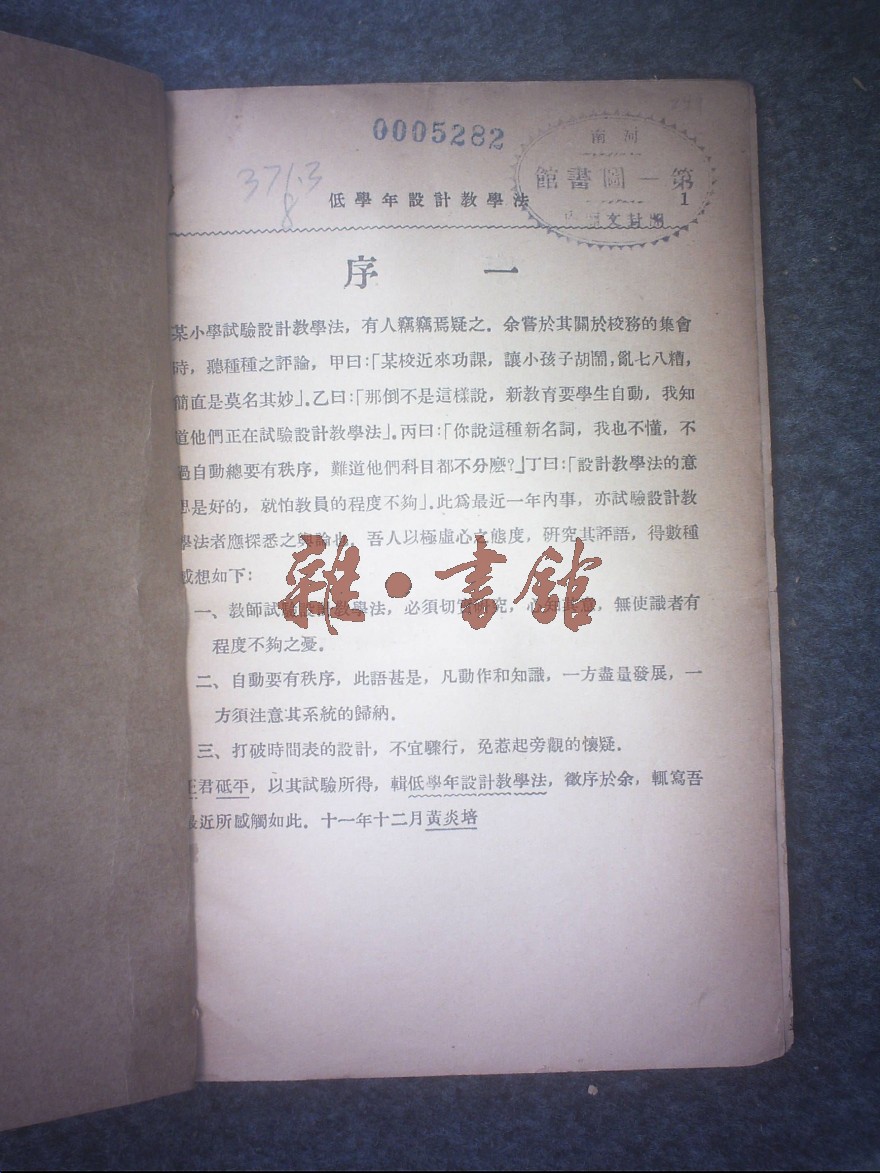 0005282
371.3
8
河南
第一圖書館
低學年設計教學法
1
序一
某小學試驗設計教學法，有人竊竊焉疑之．余嘗於其關於校務的集會
時，聽種種之評論，甲曰：「某校近來功課，讓小孩子胡鬧，亂七八糟，
簡直是莫名其妙」．乙曰：「那倒不是這樣說，新教育要學生自動，我知
道他們正在試驗設計教學法」．丙曰：「你說這種新名詞，我也不懂，不
過自動總要有秩序，難道他們科目都不分麽？」丁曰：「設計教學法的意
思是好的，就怕教員的程度不夠」．此爲最近一年內事，亦試驗設計教
學法者應探悉之輿論也．吾人以極虛心之態度，研究其評語，得數種
感想如下：
一、教師試驗設計教學法，必須切實研究，必知其意，無使識者有
程度不夠之憂．
二、自動要有秩序，此語甚是，凡動作和知識，一方盡量發展，一
方須注意其系統的歸納．
三、打破時間表的設計，不宜驟行，免惹起旁觀的懷疑．
王君砥平，以其試驗所得，輯低學年設計教學法，徵序於余，輒寫吾
最近所感觸如此．十一年十二月黃炎培
雜·書館